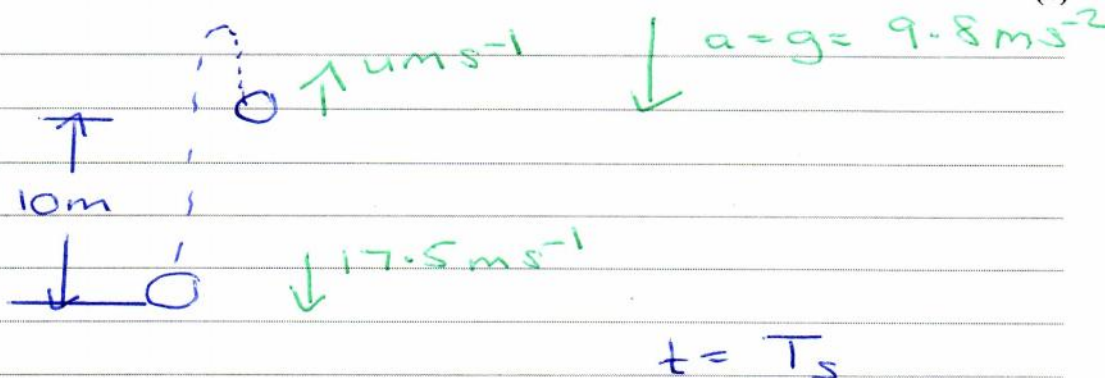 um s⁻¹
a = g = 9.8 ms⁻²
10m
17.5 ms⁻¹
t = T s